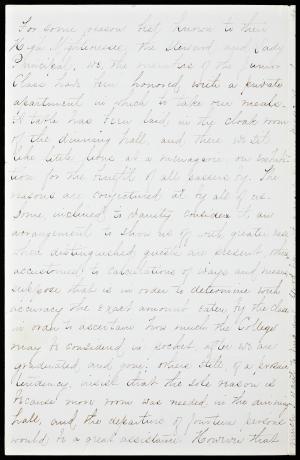 For some reason best known to their
High Mightinesses, the Steward and Lady
Principal, we, the members of the Junior
Class have been honored, with a private
apartment in which to take our meals.
A table has been laid, in the cloak room
of the dinning hall, and, there we sit
like little lions at a menagerie, on exhibi-
tion for the benefit of all passers by. The
reasons are conjectured at by all of us.
Some, inclined to vanity consider it, an
arrangement to show us off with greater ease
when distinguished guests are present, others
accustomed to calculations of ways and means
suppose that is in order to determine with
accuracy the exact amount eaten by the class
in order to ascertain how much the College
may be considered in pocket after we are
graduated, and gone; others still, of a prosaic
tendency, insist that the sole reason is
because more room was needed in the dinning
hall, and, the departure of fourteen persons
would be a great assistance. However that